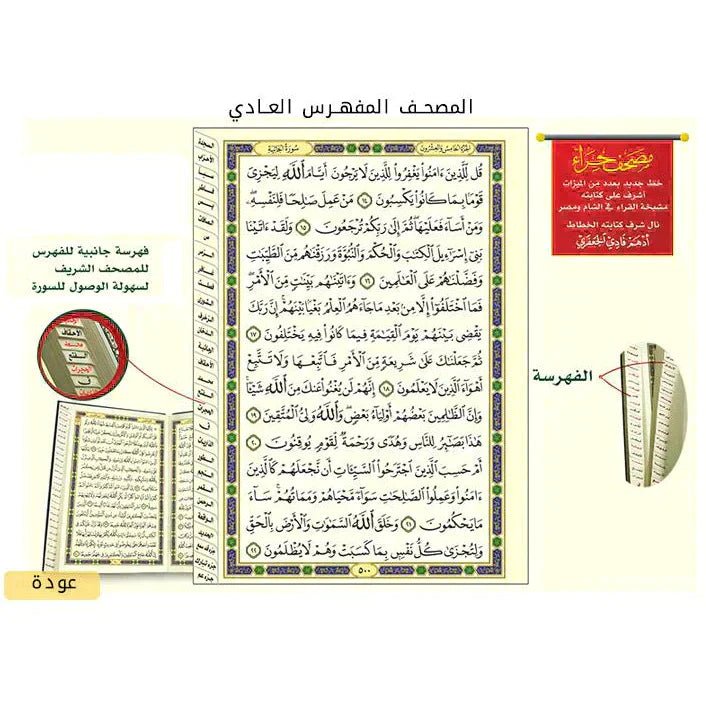 المصحف المفهرس العادي
سورة الجاثية
الجزء الخامس والعشرون
قُل لِّلَّذِينَ ءَامَنُوا۟ يَغْفِرُوا۟ لِلَّذِينَ لَا يَرْجُونَ أَيَّامَ ٱللَّهِ لِيَجْزِىَ
قَوْمًۢا بِمَا كَانُوا۟ يَكْسِبُونَ ١٤ مَنْ عَمِلَ صَٰلِحًا فَلِنَفْسِهِۦ ۖ
وَمَنْ أَسَآءَ فَعَلَيْهَا ۖ ثُمَّ إِلَىٰ رَبِّكُمْ تُرْجَعُونَ ١٥ وَلَقَدْ ءَاتَيْنَا
بَنِىٓ إِسْرَٰٓءِيلَ ٱلْكِتَٰبَ وَٱلْحُكْمَ وَٱلنُّبُوَّةَ وَرَزَقْنَٰهُم مِّنَ ٱلطَّيِّبَٰتِ
وَفَضَّلْنَٰهُمْ عَلَى ٱلْعَٰلَمِينَ ١٦ وَءَاتَيْنَٰهُم بَيِّنَٰتٍ مِّنَ ٱلْأَمْرِ ۖ
فَمَا ٱخْتَلَفُوٓا۟ إِلَّا مِنۢ بَعْدِ مَا جَآءَهُمُ ٱلْعِلْمُ بَغْيًۢا بَيْنَهُمْ ۚ إِنَّ رَبَّكَ
يَقْضِى بَيْنَهُمْ يَوْمَ ٱلْقِيَٰمَةِ فِيمَا كَانُوا۟ فِيهِ يَخْتَلِفُونَ ١٧
ثُمَّ جَعَلْنَٰكَ عَلَىٰ شَرِيعَةٍ مِّنَ ٱلْأَمْرِ فَٱتَّبِعْهَا وَلَا تَتَّبِعْ
أَهْوَآءَ ٱلَّذِينَ لَا يَعْلَمُونَ ١٨ إِنَّهُمْ لَن يُغْنُوا۟ عَنكَ مِنَ ٱللَّهِ شَيْـًٔا ۚ
وَإِنَّ ٱلظَّٰلِمِينَ بَعْضُهُمْ أَوْلِيَآءُ بَعْضٍ ۖ وَٱللَّهُ وَلِىُّ ٱلْمُتَّقِينَ ١٩
هَٰذَا بَصَٰٓئِرُ لِلنَّاسِ وَهُدًى وَرَحْمَةٌ لِّقَوْمٍ يُوقِنُونَ ٢٠
أَمْ حَسِبَ ٱلَّذِينَ ٱجْتَرَحُوا۟ ٱلسَّيِّـَٔاتِ أَن نَّجْعَلَهُمْ كَٱلَّذِينَ
ءَامَنُوا۟ وَعَمِلُوا۟ ٱلصَّٰلِحَٰتِ سَوَآءً مَّحْيَاهُمْ وَمَمَاتُهُمْ ۚ سَآءَ
مَا يَحْكُمُونَ ٢١ وَخَلَقَ ٱللَّهُ ٱلسَّمَٰوَٰتِ وَٱلْأَرْضَ بِٱلْحَقِّ
وَلِتُجْزَىٰ كُلُّ نَفْسٍۭ بِمَا كَسَبَتْ وَهُمْ لَا يُظْلَمُونَ ٢٢
٥٠٠
مصحف حراء
خط جديد بعدد من الميزات
أشرف على كتابته
مشيخة القراء في الشام ومصر
نال شرف كتابته الخطاط
أدهم فادي الجعفري
فهرسة جانبية للفهرس
للمصحف الشريف
لسهولة الوصول للسورة
الفهرسة
السجدة
الأحزاب
سبأ
فاطر
يس
الصافات
ص
الزمر
غافر
فصلت
الشورى
الزخرف
الدخان
الجاثية
الأحقاف
محمد
الفتح
الحجرات
ق
الذاريات
الطور
النجم
القمر
الرحمن
الواقعة
الحديد
جزء قد سمع
جزء تبارك
جزء عم
عودة